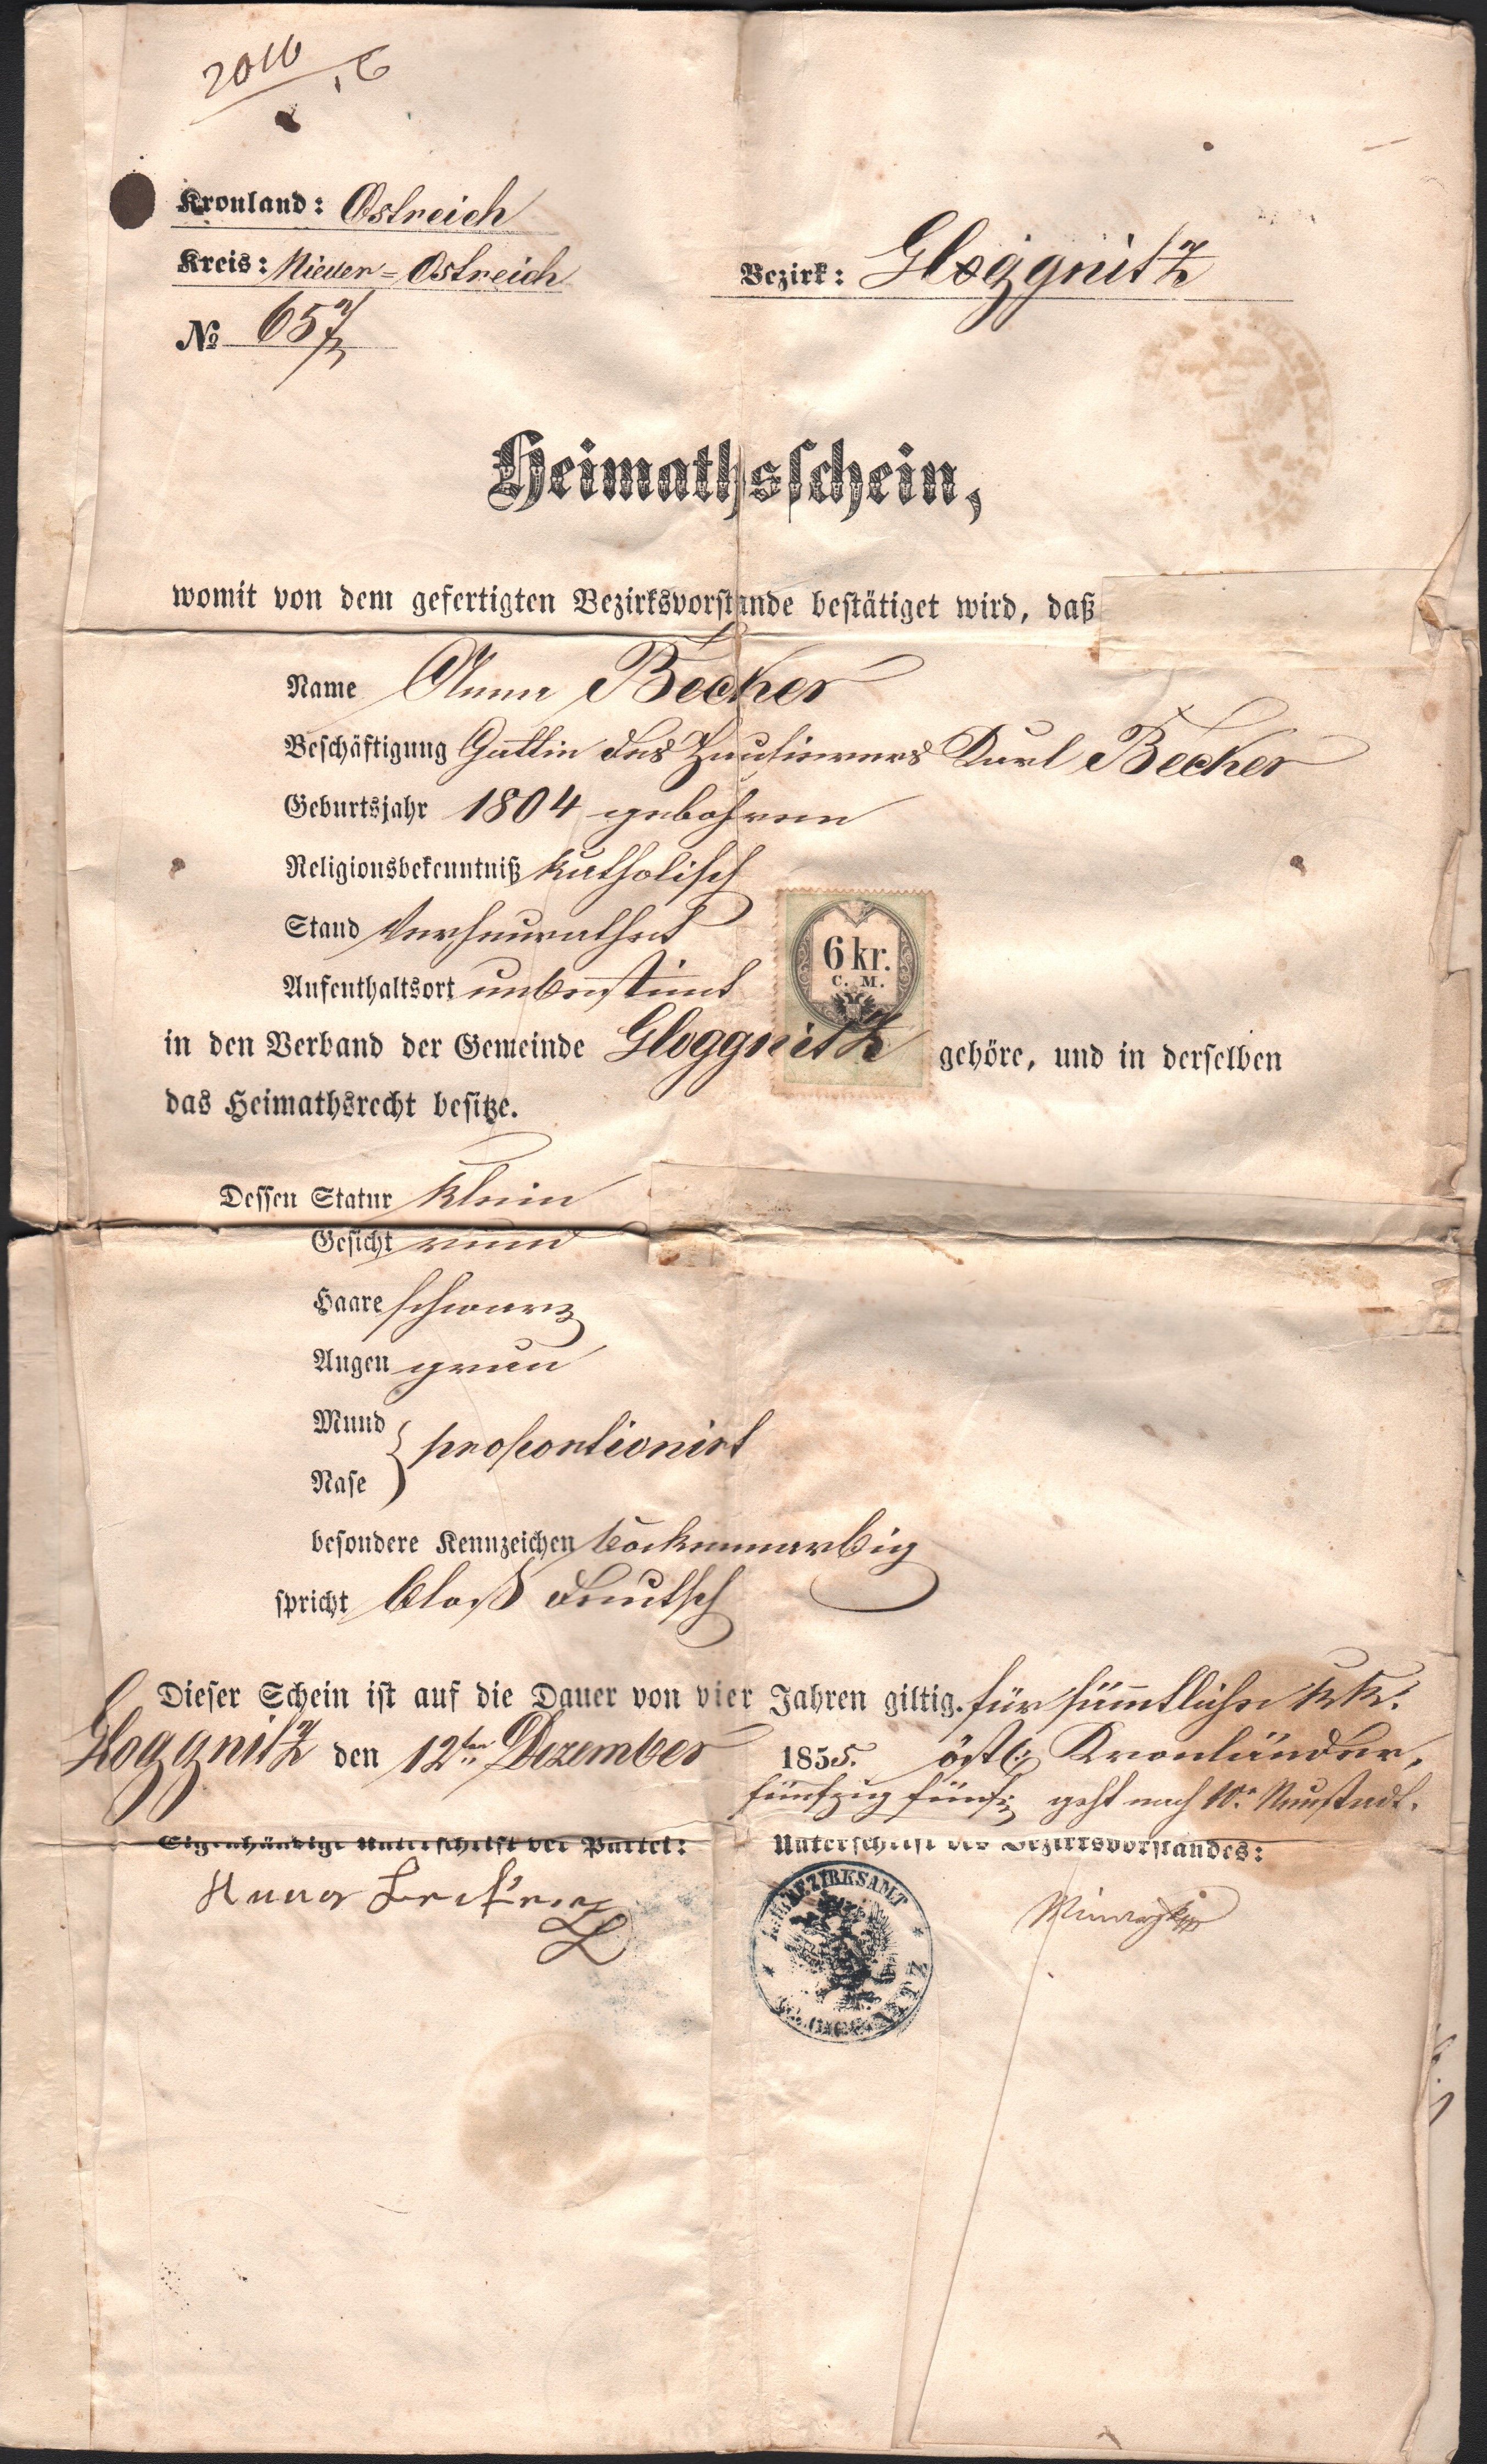 2016
Kronland: Östreich
Kreis: Nieder-Östreich
Bezirk: Gloggnitz
№ 657
Heimathsschein,
womit von dem gefertigten Bezirksvorstande bestätiget wird, daß
Name Anna Becker
Beschäftigung Gattin des Hausierers Karl Becker
Geburtsjahr 1804 gebohren
Religionsbekenntniß katholisch
Stand Verheurathet
Aufenthaltsort unbestimt
6 kr.
C. M.
in den Verband der Gemeinde Gloggnitz gehöre, und in derselben
das Heimathsrecht besitze.
Dessen Statur klein
Gesicht rund
Haare schwarz
Augen grau
Mund
Nase } proportionirt
besondere Kennzeichen
spricht blos deutsch
Dieser Schein ist auf die Dauer von vier Jahren giltig. für sämtliche kk.
Gloggnitz den 12ten Dezember 1855. öst. Kronländer,
fünfzig fünf geht nach Neustadt.
Eigenhändige Unterschrift der Partei: Unterschrift des Bezirksvorstandes:
Anna
K.K. BEZIRKSAMT